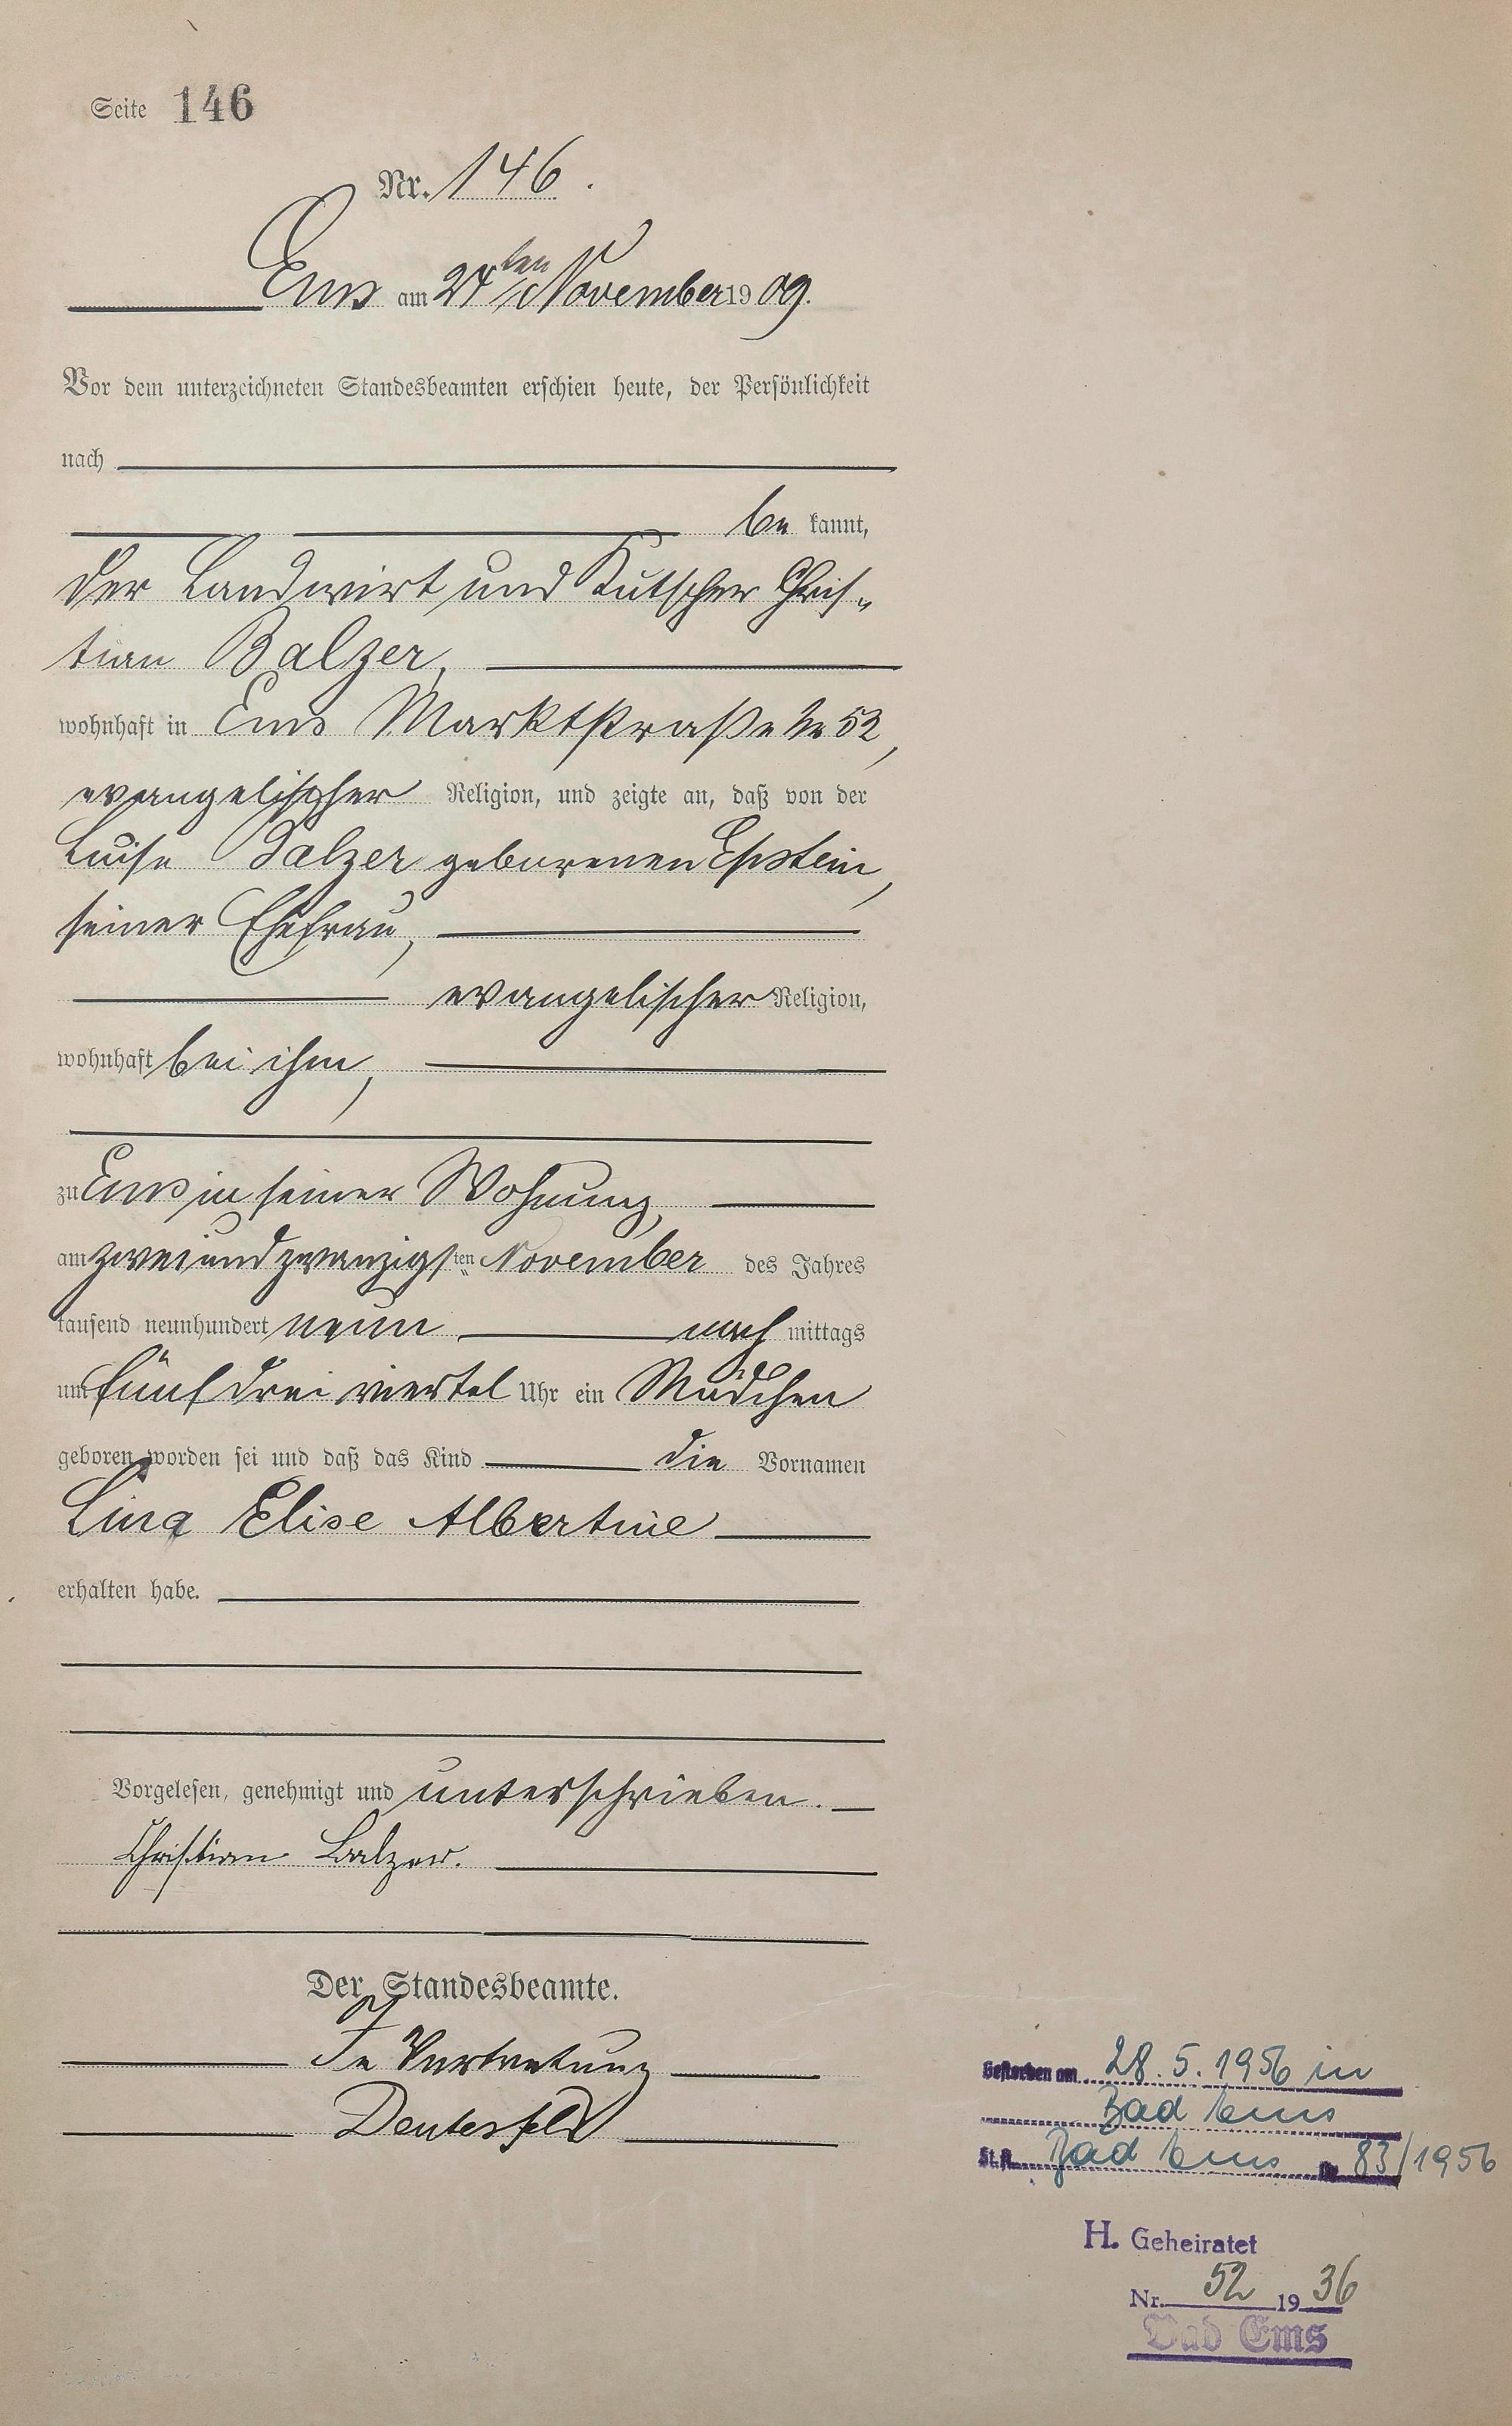 Seite 146
Nr. 146.
Ems am 24ten November 1909.
Vor dem unterzeichneten Standesbeamten erschien heute, der Persönlichkeit
nach
be kannt,
der Landwirt und Kutscher Chris-
tian Balzer,
wohnhaft in Ems Marktstraße No 52,
evangelischer Religion, und zeigte an, daß von der
Luise Balzer geborenen Epstein,
seiner Ehefrau,
evangelischer Religion,
wohnhaft bei ihm,
zu Ems in seiner Wohnung,
am zweiundzwanzigsten November des Jahres
tausend neunhundert neun nach mittags
um fünf drei viertel Uhr ein Mädchen
geboren worden sei und daß das Kind die Vornamen
Lina Elise Albertine
erhalten habe.
Vorgelesen, genehmigt und unterschrieben.
Christian Balzer.
Der Standesbeamte.
In Vertretung
Deutesfeld
Gestorben am 28.5.1956 in
Bad Ems
St.A. Bad Ems Nr 83/1956
H. Geheiratet
Nr. 52 1936
Bad Ems